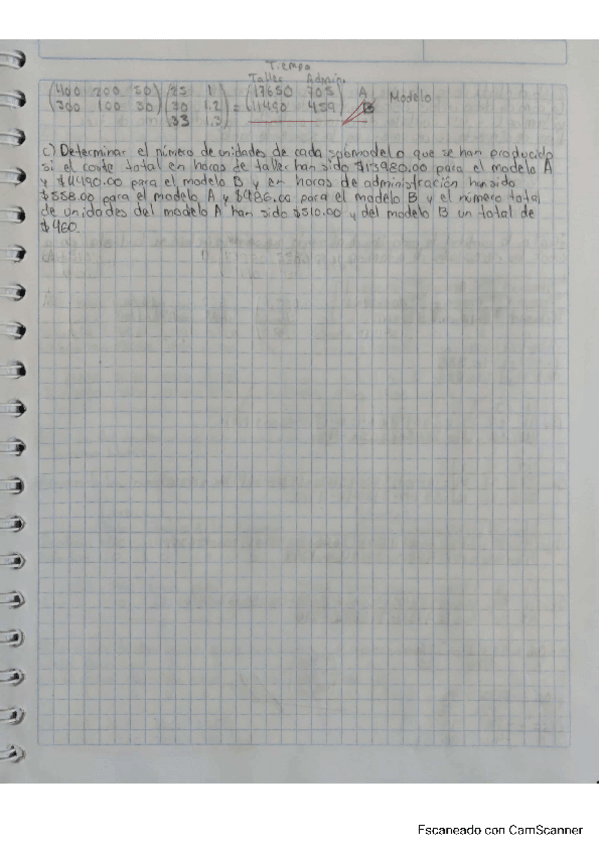 Tiempo
Taller Admin.
(400 200 50) (25 1) (17650 705) A Modelo
(300 100 30) (30 1.2) = (11490 459) B
(33 1.3)
c) Determinar el número de unidades de cada submodelo que se han producido
si el coste total en horas de taller han sido $13980.00 para el modelo A
y $11490.00 para el modelo B y en horas de administración han sido
$558.00 para el modelo A y $486.00 para el modelo B y el número total
de unidades del modelo A han sido $510.00 y del modelo B un total de
$460.
Escaneado con CamScanner